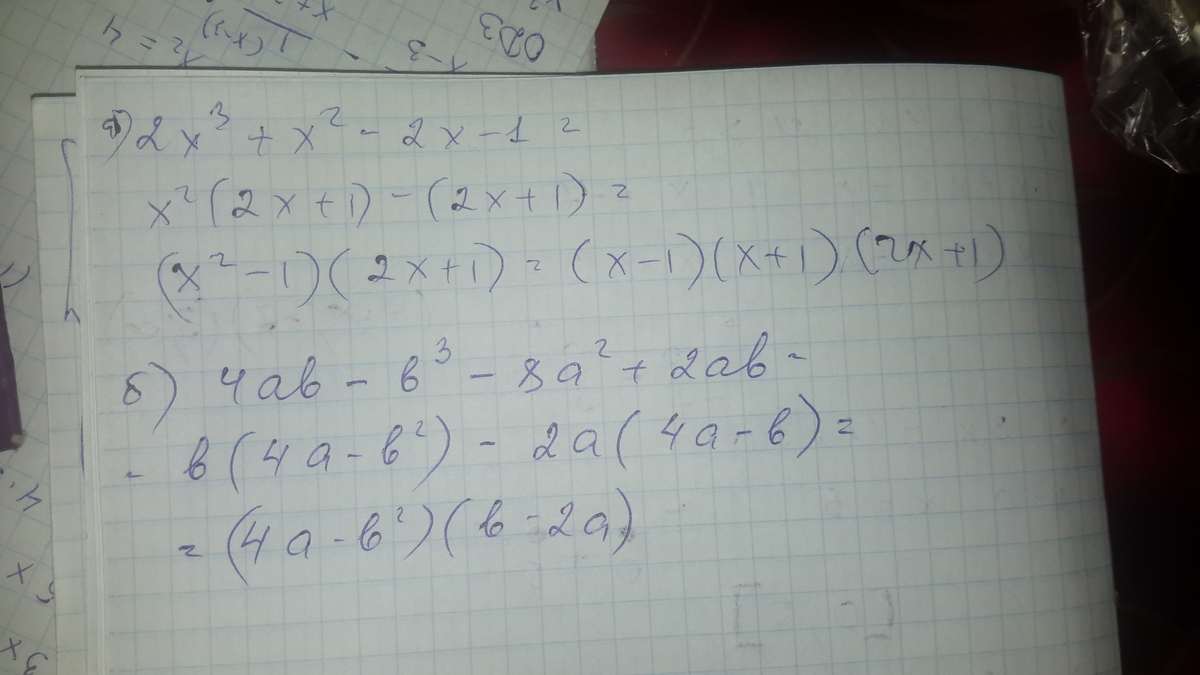 2x³ + x² - 2x - 1 =
x² (2x + 1) - (2x + 1) =
(x² - 1) (2x + 1) = (x - 1) (x + 1) (2x + 1)
б) 4ab - b³ - 8a² + 2ab =
= b (4a - b²) - 2a (4a - b) =
= (4a - b²) (b - 2a)